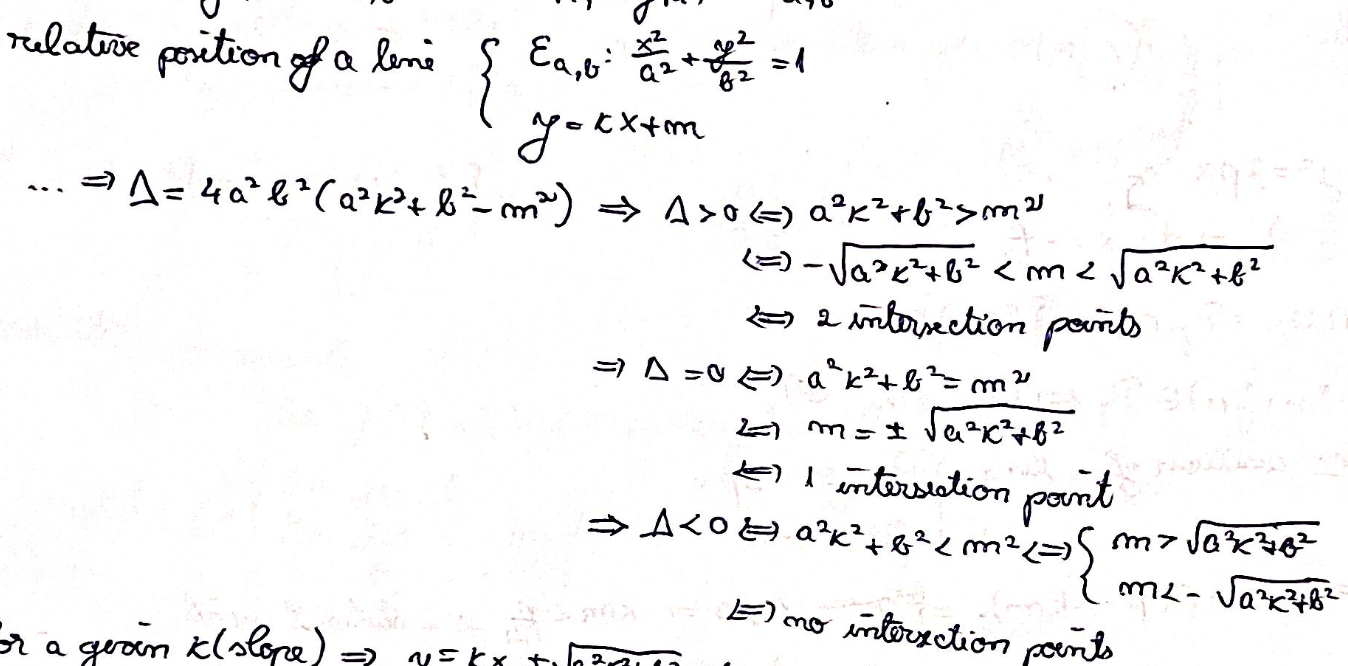 relative position of a line { Ea,b: x²/a² + y²/b² = 1
y = kx+m
... ⇒ Δ = 4a²b²(a²k²+b²-m²) ⇒ Δ>0 ⇔ a²k²+b²>m²
⇔ -√(a²k²+b²) < m < √(a²k²+b²)
⇔ 2 intersection points
⇒ Δ=0 ⇔ a²k²+b²=m²
⇔ m = ± √(a²k²+b²)
⇔ 1 intersection point
⇒ Δ<0 ⇔ a²k²+b²<m² ⇔ { m > √(a²k²+b²)
m < -√(a²k²+b²)
⇔ no intersection points
or a given k(slope) ⇒ y = kx ±